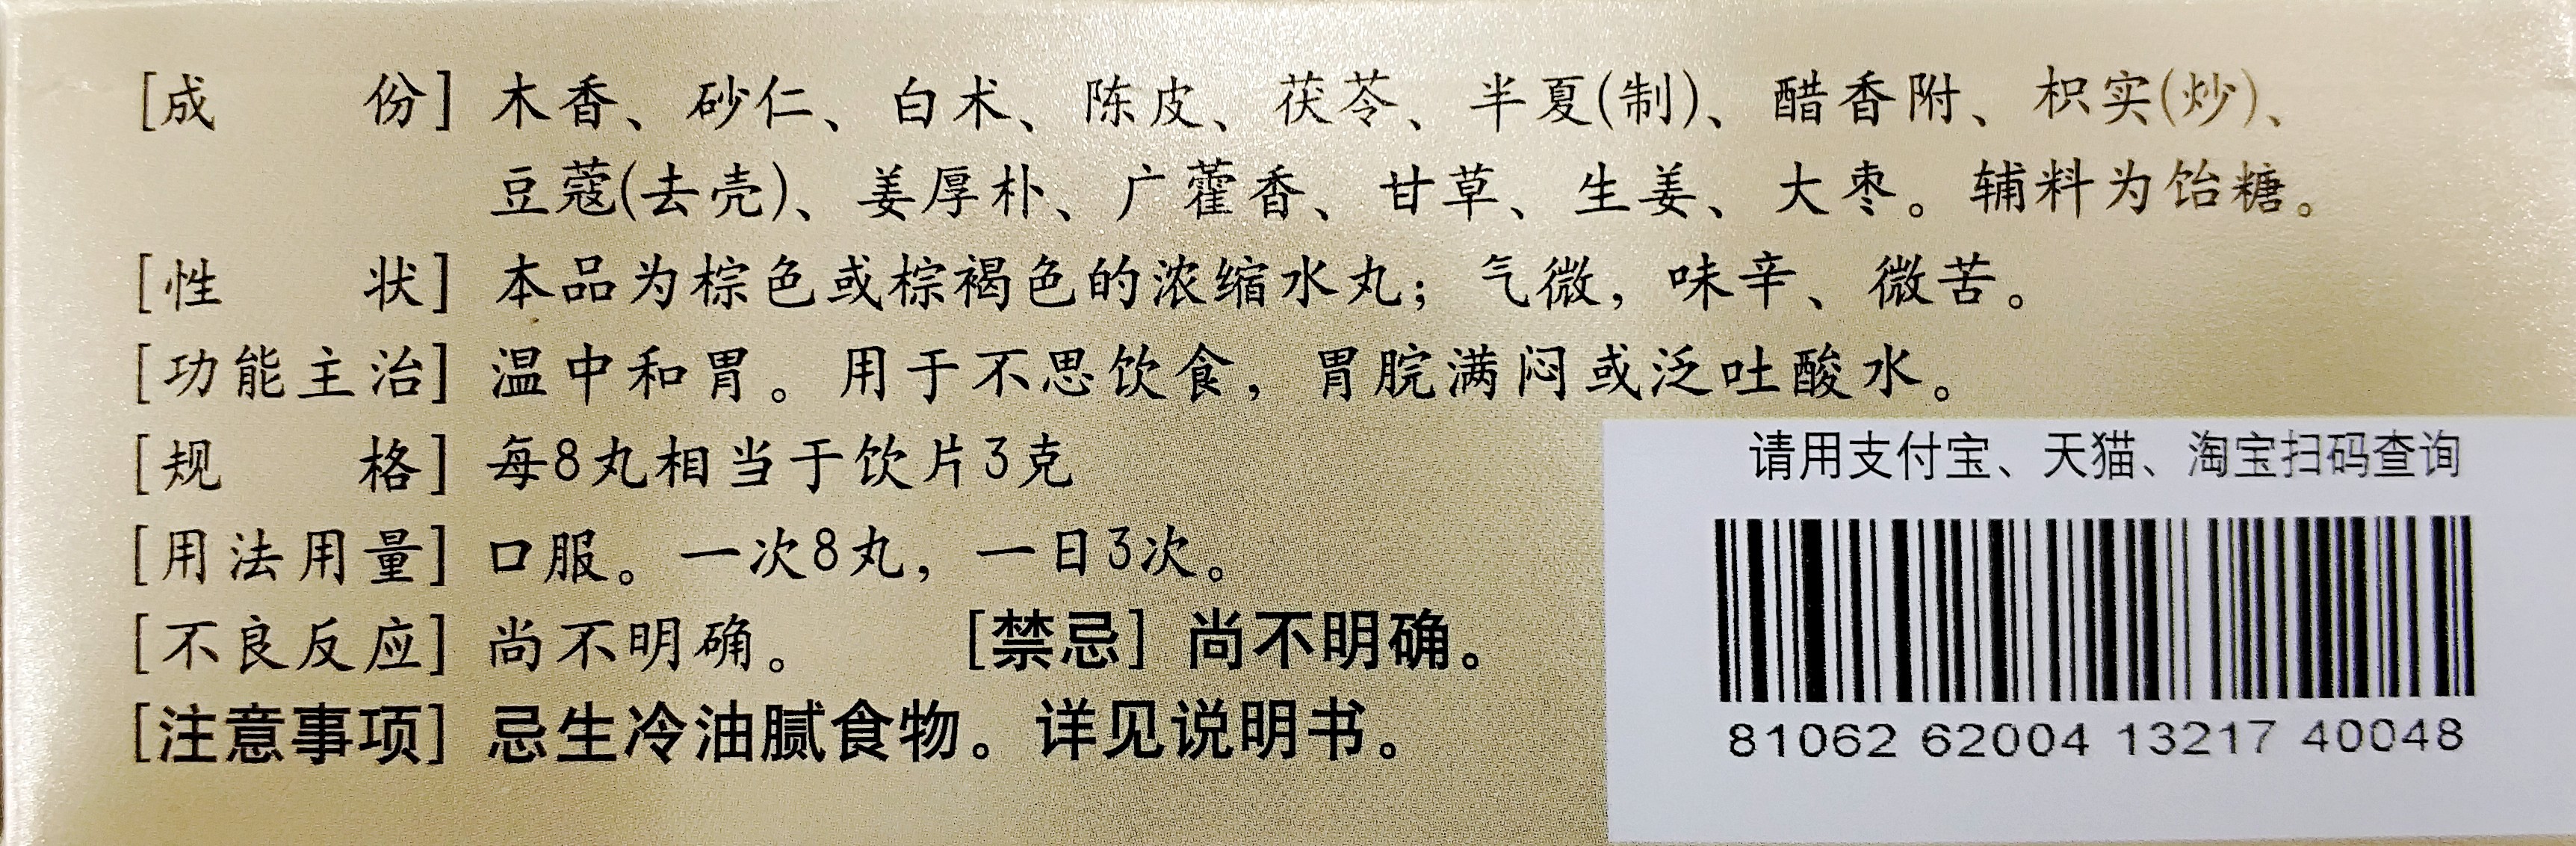 [成份] 木香、砂仁、白术、陈皮、茯苓、半夏(制)、醋香附、枳实(炒)、
豆蔻(去壳)、姜厚朴、广藿香、甘草、生姜、大枣。辅料为饴糖。
[性状] 本品为棕色或棕褐色的浓缩水丸；气微，味辛、微苦。
[功能主治] 温中和胃。用于不思饮食，胃脘满闷或泛吐酸水。
[规格] 每8丸相当于饮片3克
[用法用量] 口服。一次8丸，一日3次。
[不良反应] 尚不明确。 [禁忌] 尚不明确。
[注意事项] 忌生冷油腻食物。详见说明书。
请用支付宝、天猫、淘宝扫码查询
81062 62004 13217 40048